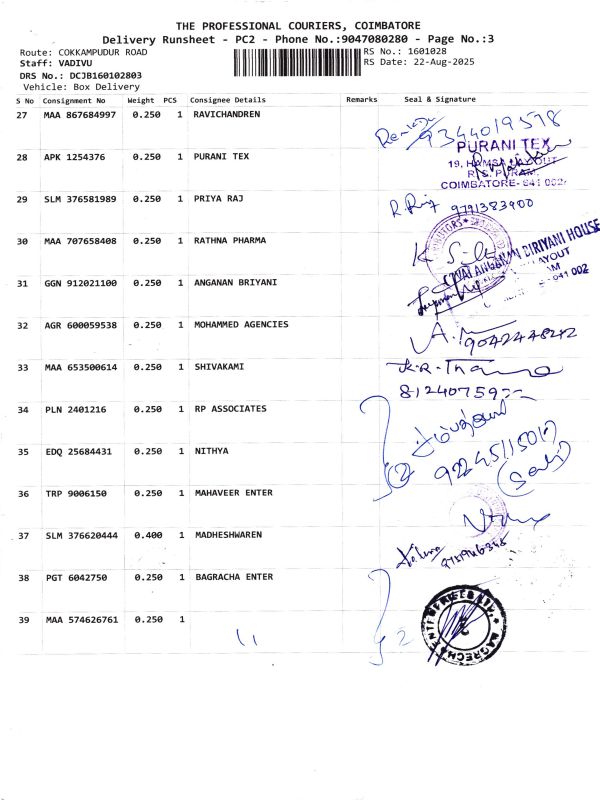 THE PROFESSIONAL COURIERS, COIMBATORE
Delivery Runsheet - PC2 - Phone No.:9047080280 - Page No.:3
Route: COKKAMPUDUR ROAD
RS No.: 1601028
Staff: VADIVU
RS Date: 22-Aug-2025
DRS No.: DCJB160102803
Vehicle: Box Delivery
S No Consignment No Weight PCS Consignee Details Remarks Seal & Signature
27 MAA 867684997 0.250 1 RAVICHANDREN
9344019578
28 APK 1254376 0.250 1 PURANI TEX
PURANI TEX
19, HAMSA LAYOUT
R.S. PURAM,
COIMBATORE- 641 002.
29 SLM 376581989 0.250 1 PRIYA RAJ
9791383900
30 MAA 707658408 0.250 1 RATHNA PHARMA
31 GGN 912021100 0.250 1 ANGANAN BRIYANI
ANGANAN BIRIYANI HOUSE
LAYOUT
641 002
32 AGR 600059538 0.250 1 MOHAMMED AGENCIES
9042448242
33 MAA 653500614 0.250 1 SHIVAKAMI
81240759
34 PLN 2401216 0.250 1 RP ASSOCIATES
35 EDQ 25684431 0.250 1 NITHYA
2
36 TRP 9006150 0.250 1 MAHAVEER ENTER
37 SLM 376620444 0.400 1 MADHESHWAREN
38 PGT 6042750 0.250 1 BAGRACHA ENTER
39 MAA 574626761 0.250 1
"
2